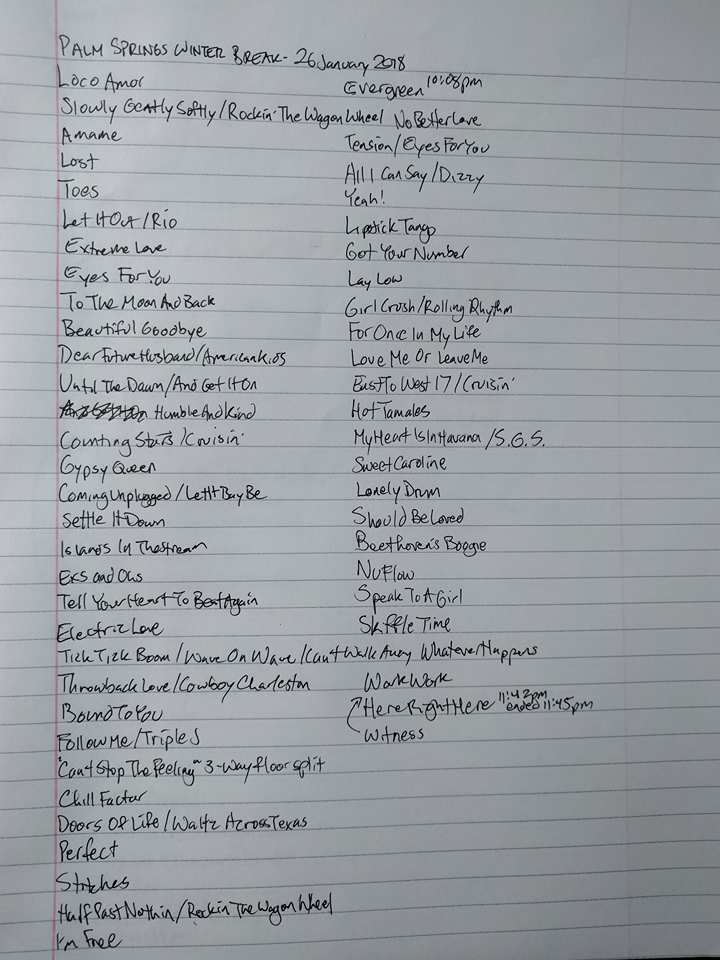 PALM SPRINGS WINTER BREAK - 26 January 2018
Loco Amor
Slowly Gently Softly/Rockin' The Wagon Wheel
Amame
Lost
Toes
Let It Out/Rio
Extreme Love
Eyes For You
To The Moon And Back
Beautiful Goodbye
Dear Future Husband/American Kids
Until The Dawn/And Get It On
Humble And Kind
Counting Stars/Cruisin'
Gypsy Queen
Coming Unplugged/Let It Buy Be
Settle It Down
Islands In The stream
EXS and Ohs
Tell Your Heart To Beat Again
Electric Love
Tick Tick Boom/Wave On Wave/Can't Walk Away
Throwback Love/Cowboy Charleston
Bound To You
Follow Me/Triple S
"Can't Stop The Feeling" 3-way floor split
Chill Factor
Doors Of Life/Waltz Across Texas
Perfect
Stitches
Half Past Nothin/Rockin The Wagon Wheel
I'm Free
Evergreen 10:08pm
No Better Love
Tension/Eyes For You
All I Can Say/Dizzy
Yeah!
Lipstick Tango
Got Your Number
Lay Low
Girl Crush/Rolling Rhythm
For Once In My Life
Love Me Or Leave Me
East To West 17/Cruisin'
Hot Tamales
My Heart Is In Havana/S.G.S.
Sweet Caroline
Lonely Drum
Should Be Loved
Beethoven's Boogie
Nu Flow
Speak To A Girl
Skiffle Time
Whatever Happens
Work Work
Here Right Here 11:42pm ended 11:45pm
Witness